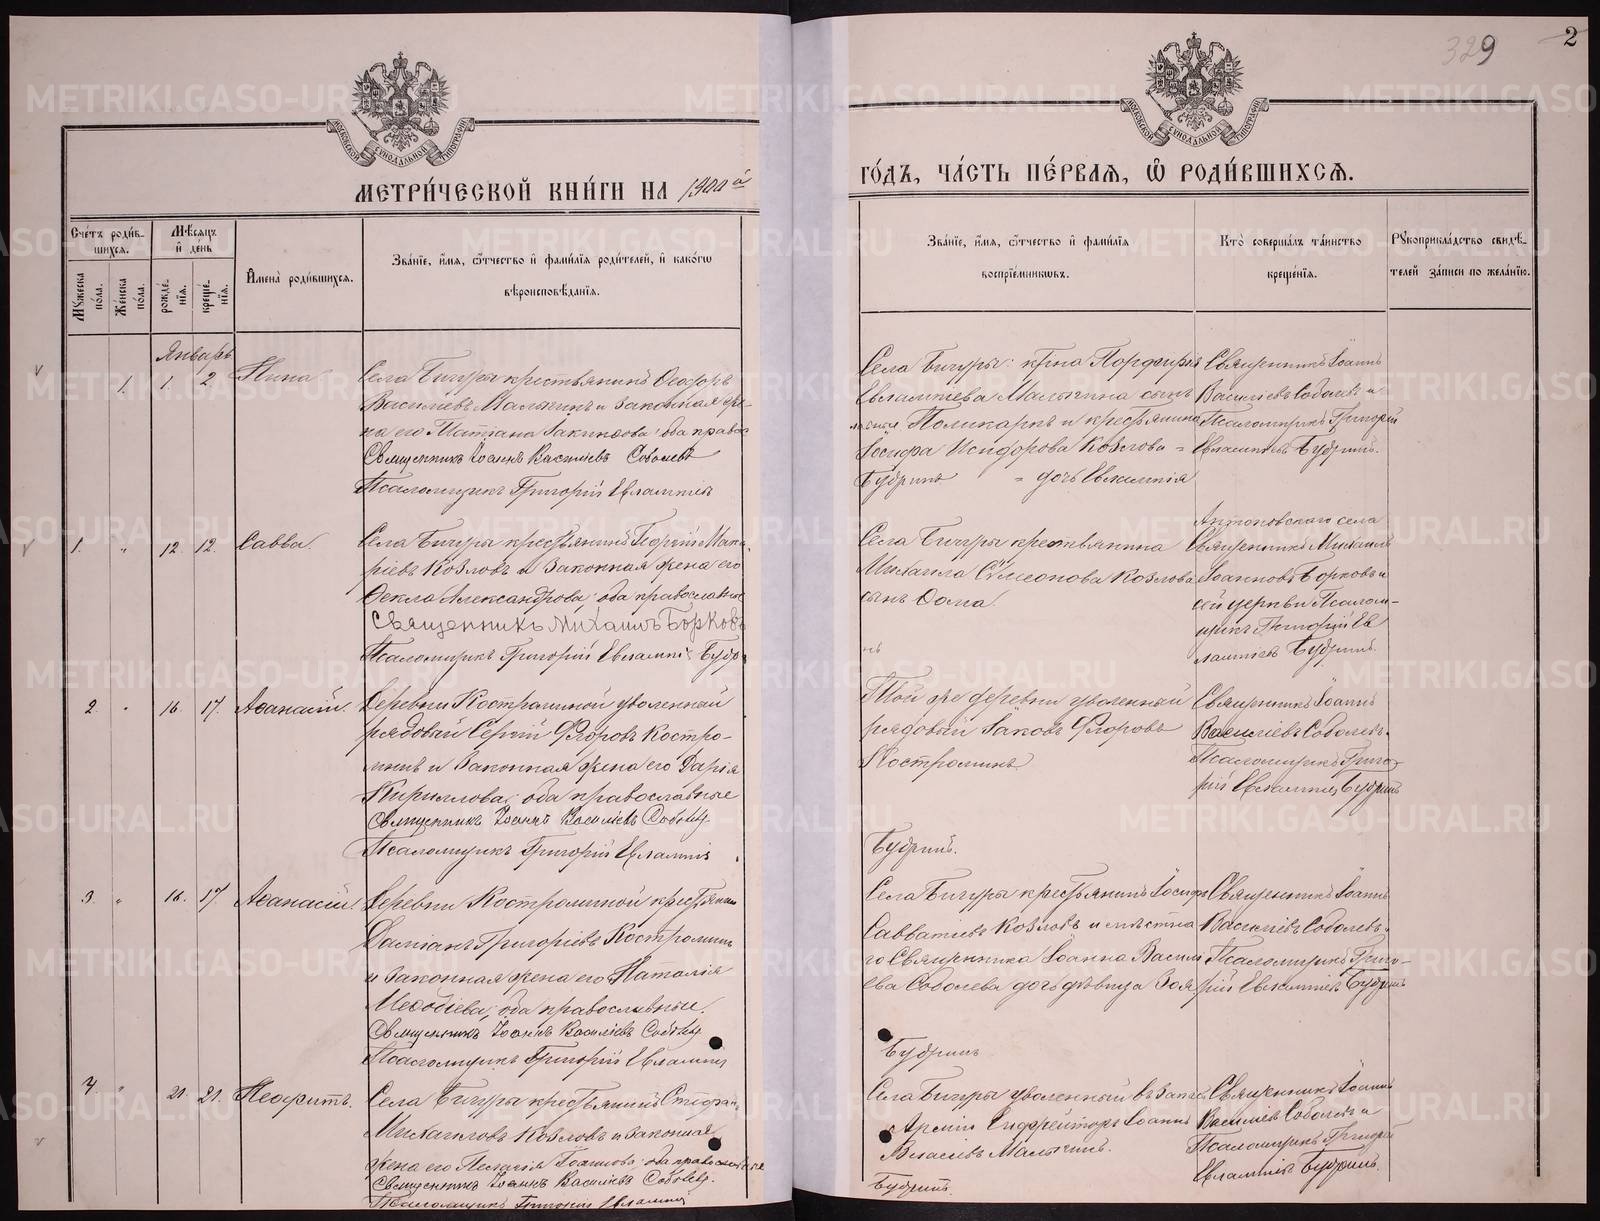 329
2
МОСКОВСКОЙ СѴНОДАЛЬНОЙ ТИПОГРАФІИ
МОСКОВСКОЙ СѴНОДАЛЬНОЙ ТИПОГРАФІИ
МЕТРИ́ЧЕСКОЙ КНИ́ГИ НА 1900й
ГО́ДЪ, ЧА́СТЬ ПЕ́РВАѦ, Ѡ РОДИ́ВШИХСѦ.
Сче́тъ роди́в-
шихсѧ.
Мꙋжеска по́ла.
Же́нска по́ла.
Мѣсѧцъ и де́нь
рожде́-
нїѧ.
креще́-
нїѧ.
Имена̀ роди́вшихсѧ.
Зва́нїе, и́мѧ, ѻ҆́тчество и҆ фами́лїѧ роди́телей, и҆ како́гѡ
вѣроисповѣ́данїѧ.
Зва́нїе, и́мѧ, ѻ҆́тчество и҆ фами́лїѧ
воспрїе́мникѡвъ.
Кто̀ соверша́лъ та́инство
креще́нїѧ.
Рꙋкоприкла́дство свидѣ́-
телей за́писи по жела́нїю.
Январь
1. 1. 2 Нина
Села Бичуры крестьянинъ Ѳеодоръ
Василіевъ Малыгинъ и законная же-
на его Татіана Іакинѳова; оба правос
Священникъ Іоаннъ Василіевъ Соболевъ
Псаломщикъ Григорій Евлампіевъ
Села Бичуры кр҃ина Порфирія
Евлампіева Малыгина сынъ
Поликарпъ и крестьянина
Іосифа Исидорова Козлова =
Будринъ = дочь Евлампія
Священникъ Іоаннъ
Василіевъ Соболевъ и
Псаломщикъ Григорій
Евлампіевъ Будринъ.
1. " 12. 12. Савва.
Села Бичуры крестьянинъ Георгій Мака-
ріевъ Козловъ и законная жена его
Ѳекла Александрова; оба православные
Священникъ Михаилъ Борковъ
Псаломщикъ Григорій Евлампі Будр
Села Бичуры крестьянина
Михаила Сѵмеонова Козлова
сынъ Ѳома.
нъ
села
Священникъ Михаилъ
Іоанновъ Борковъ и
сей церкви Псалом-
щикъ Григорій Ев
лампіевъ Будринъ.
2 " 16. 17. Аѳанасій.
Деревни Костроминой уволенный
рядовой Сергій Флоровъ Костро-
минъ и законная жена его Дарія
Кириллова; оба православные
Священникъ Іоаннъ Василіевъ Соболевъ.
Псаломщикъ Григорій Евлампіевъ
Той же деревни уволенный
рядовой Іаковъ Флоровъ
Костроминъ
Будринъ.
Священникъ Іоаннъ
Василіевъ Соболевъ.
Псаломщикъ Григо-
рій Евлампіевъ Будринъ
3. " 16. 17. Аѳанасій.
Деревни Костроминой крестьянинъ
Даміанъ Григоріевъ Костроминъ
и законная жена его Наталія
Меѳодіева; оба православные.
Священникъ Іоаннъ Василіевъ Соболевъ
Псаломщикъ Григорій Евлампіевъ
Села Бичуры крестьянинъ Іосифъ
Савватіевъ Козловъ и мѣстна
го Священника Іоанна Васил
ева Соболева дочь дѣвица Зоя
Будринъ
Священникъ Іоаннъ
Василіевъ Соболевъ.
Псаломщикъ Григо-
рій Евлампіевъ Будринъ
4. " 21. 21. Неофитъ.
Села Бичуры крестьянинъ Стефанъ
Михаиловъ Козловъ и законная
жена его Пелагія Іоаннова; оба православные
Священникъ Іоаннъ Василіевъ Соболевъ.
Псаломщикъ Григорій Евлампіевъ
Села Бичуры уволенный въ запасъ
Арміи Ефрейторъ Іоаннъ
Власіевъ Малыгинъ.
Будринъ.
Священникъ Іоаннъ
Василіевъ Соболевъ и
Псаломщикъ Григорій
Евлампіевъ Будринъ.
METRIKI.GASO-URAL.RU